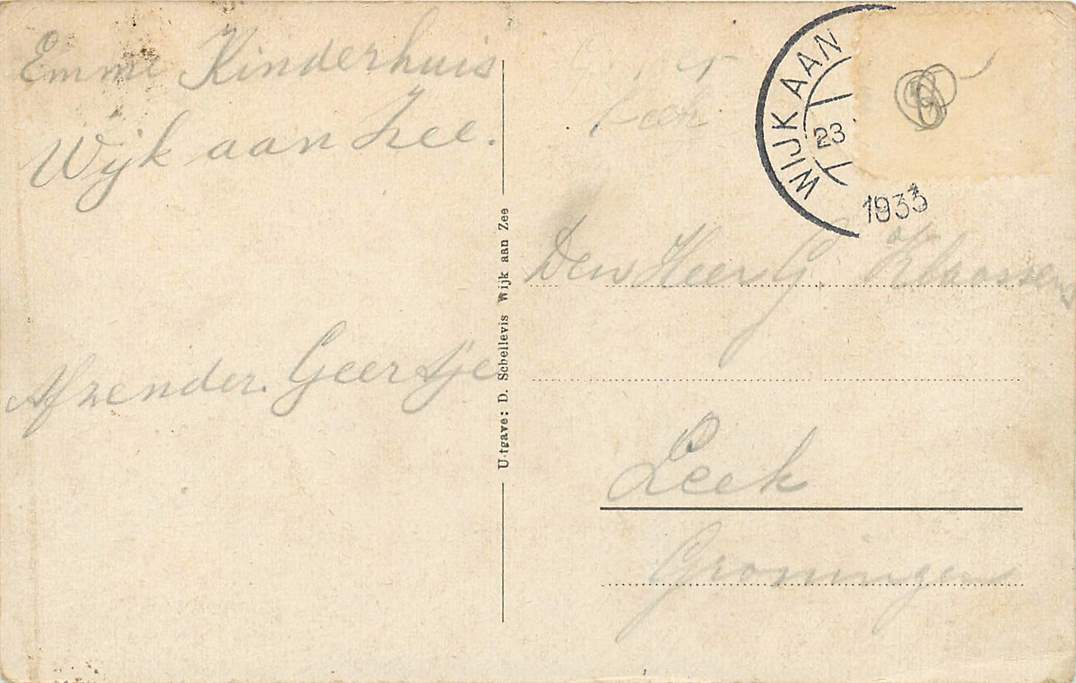 Emma Kinderhuis
Wijk aan Zee.
Afzender. Geertje
Uitgave: D. Schellevis Wijk aan Zee
Leek
WIJK AAN
23
1933
Den Heer G. Klaassens
Leek
Groningen